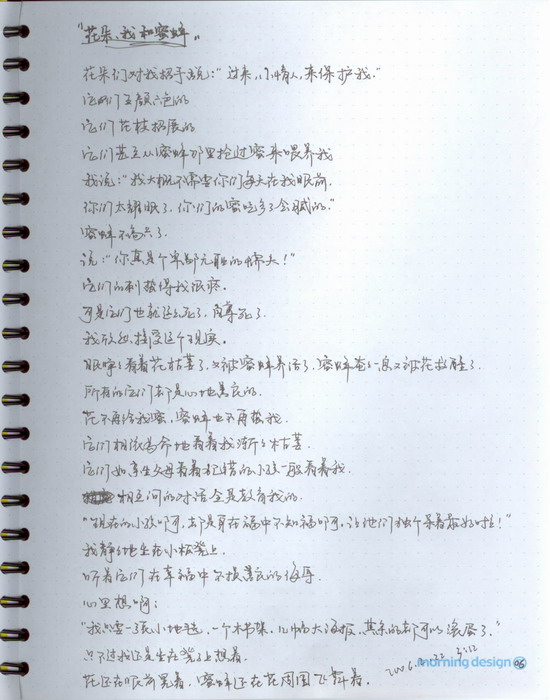 "花朵、我和蜜蜂"
花朵们对我招手说:"过来,小情人,来保护我."
它们五颜六色的
它们花枝招展的
它们甚至从蜜蜂那里抢过蜜来喂养我
我说:"我大概不需要你们每天在我眼前.
你们太耀眼了.你们的蜜吃多了会腻的."
蜜蜂不高兴了.
说:"你真是个卑鄙无耻的懦夫!"
它们的刺蛰得我很疼.
可是它们也就这么死了,自尊死了.
我欣然接受这个现实.
眼睁睁看着花枯萎了,又被蜜蜂养活了,蜜蜂奄奄一息又被花救醒了.
所有的它们都是心地善良的.
花不再给我蜜,蜜蜂也不再蛰我.
它们相依为命地看着我渐渐枯萎.
它们如亲生父母看着犯错的小孩一般看着我.
相互间的对话全是教育我的.
"现在的小孩啊,都是身在福中不知福啊,让他们独个呆着最好啦!"
我静静地坐在小板凳上.
听着它们在幸福中不损善良的侮辱.
心里想啊:
"我只需一张小地毯,一个木书架,几幅大海报,其余的都可以滚蛋了."
只不过我还是坐在凳子上想着.
花还在眼前晃着,蜜蜂还在花周围飞舞着.
morning design 06